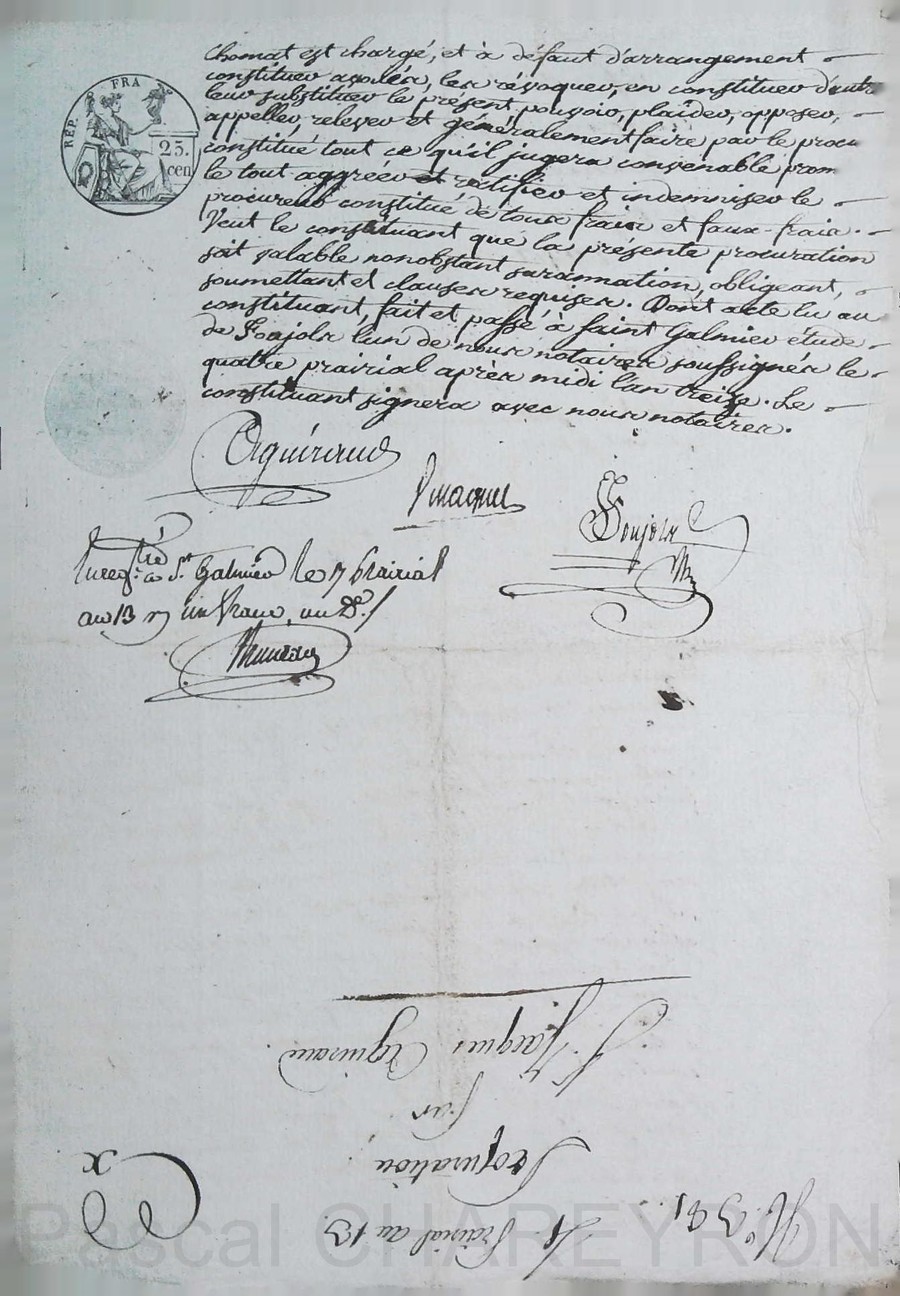 Chomat est chargé, et à défaut d'arrangement
constituer avoués, les révoquer, en constituer d'autr
leur substituer le présent pouvoir, plaider, opposer,
appeller, relever et généralement faire par le procu
constitué tout ce qu'il jugera convenable prom
le tout aggréer et ratifier et indemniser le
procureur constitué de tous frais et faux-frais.
Veut le constituant que la présente procuration
soit valable nonobstant surannation, obligeant,
soumettant et clauses requises. Dont acte lu au
constituant, fait et passé à Saint Galmier étude
de Poujols l'un de nous notaires soussignés le
quatre prairial après midi l'an treize. Le
constituant signera avec nous notaires.
REP. FRA
25.
cen
Aguiraud
Poujols
Enregtré à St Galmier le 7 Prairial
an 13 un franc, un
No 341.
4 Prairial an 13
Procuration
par
Sr Jacques Aguiraud
Pascal CHAREYRON